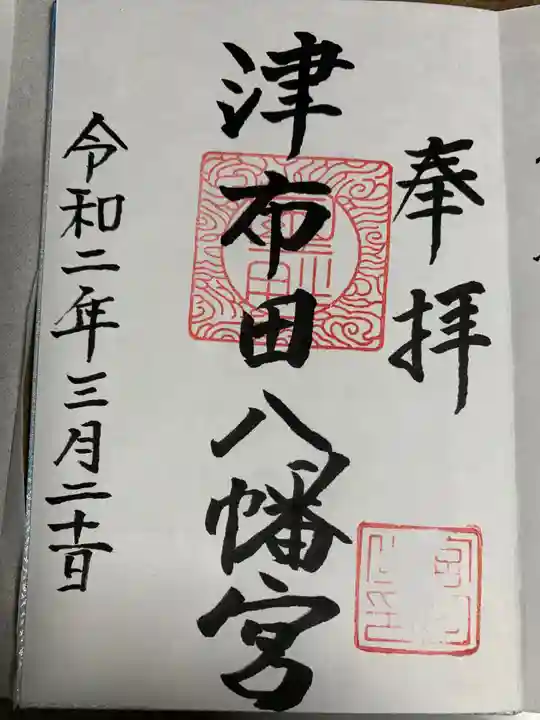 奉拝
津布田八幡宮
令和二年三月二十一日